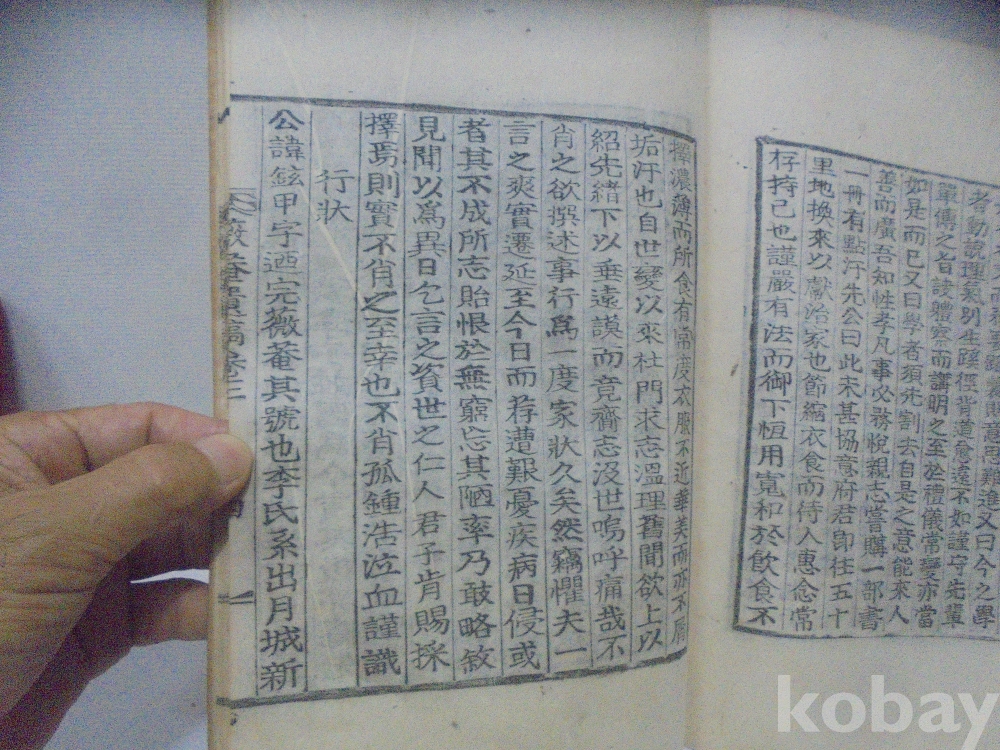 意思難進又曰今之學
者動說理氣別生蹊徑背道愈遠不如謹守先輩
單傳之旨體察而講明之至於禮儀常變亦當
如是而已又曰學者須先割去自是之意能來人
善而廣吾知性孝凡事必務悅親志嘗購一部書
一冊有點汗先公曰此未甚協意府君卽往五十
里地換來以獻治家也節縮衣食而待人惠念常
存持己也謹嚴有法而御下恆用寬和於飲食不
擇濃薄而所食有常度衣服不近華美而亦不屑
垢汗也自世變以來杜門求志溫理舊聞欲上以
紹先緖下以垂遠謨而竟齎志沒世嗚呼痛哉不
肖之欲撰述事行爲一度家狀久矣然竊懼夫一
言之爽實遷延至今日而荐遭艱憂疾病日侵或
者其不成所志貽恨於無窮忘其陋率乃敢略敘
見聞以爲異日乞言之資世之仁人君子肯賜採
擇焉則實不肖之至幸也不肖孤鍾浩泣血謹識
行狀
公諱鉉甲字迺完薇菴其號也李氏系出月城新
薇菴遺稿卷之二
kobay